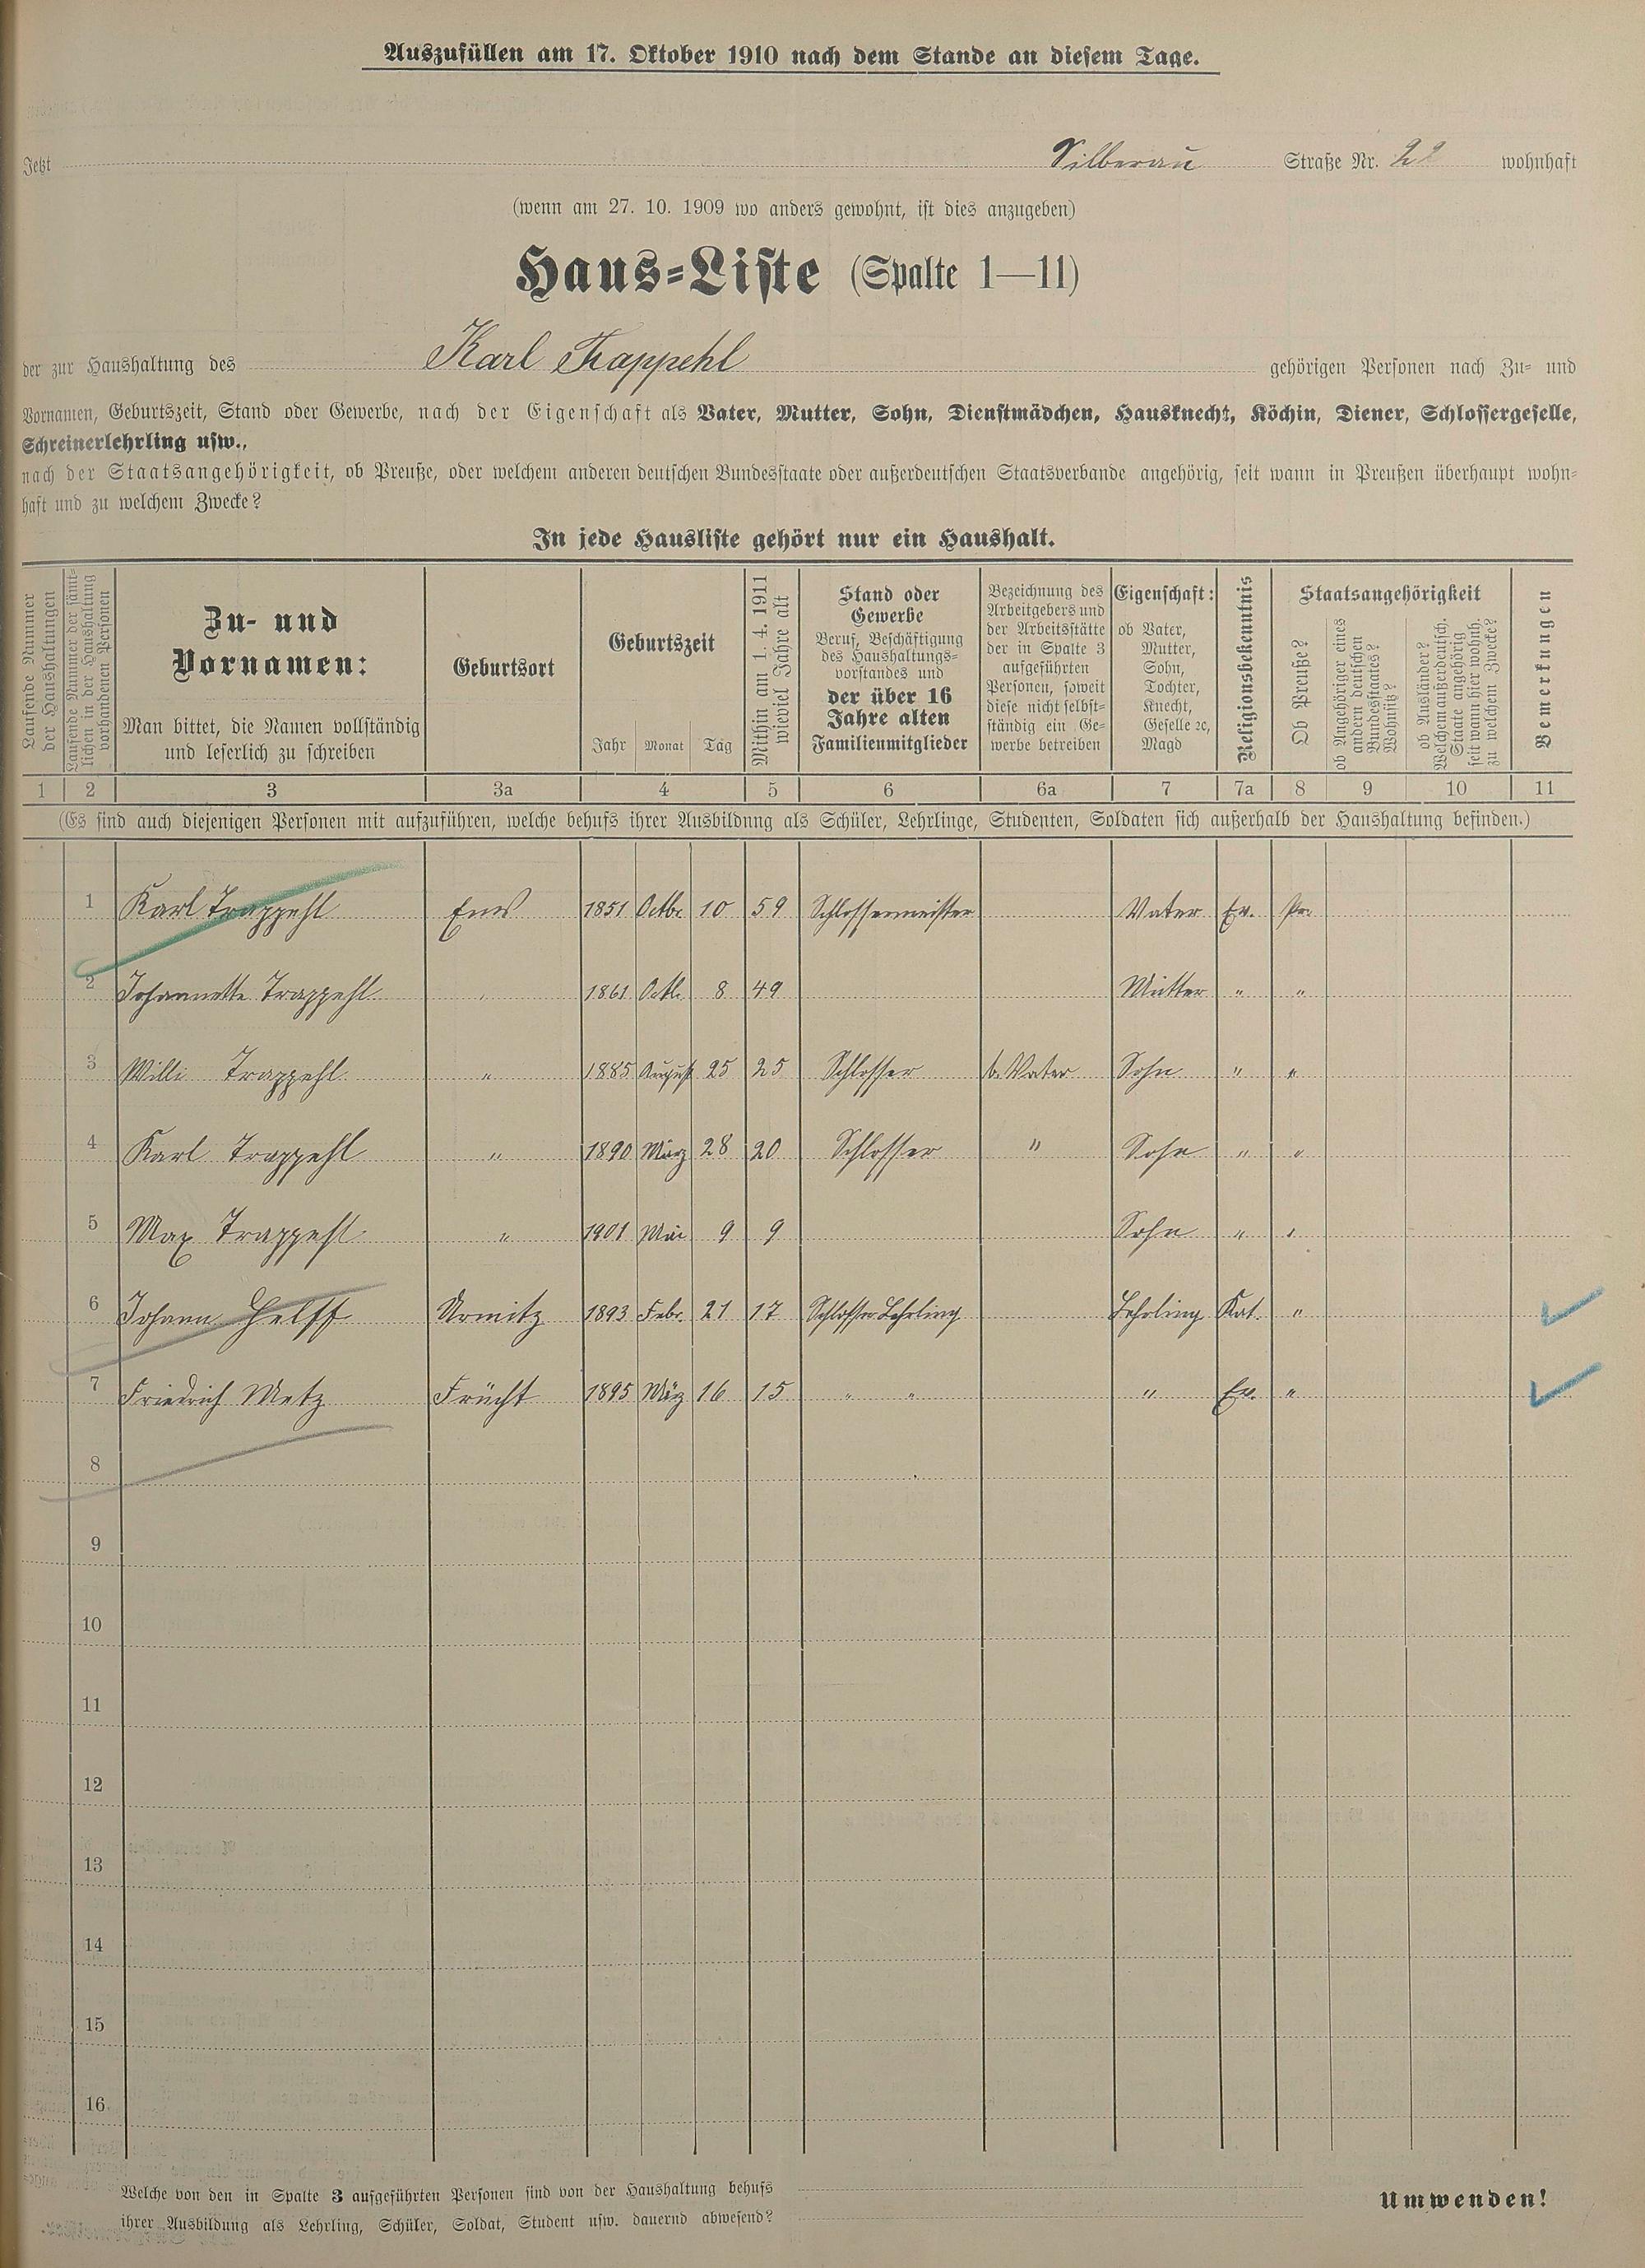 Auszufüllen am 17. Oktober 1910 nach dem Stande an diesem Tage.
Jetzt Silberau Straße Nr. 22 wohnhaft
(wenn am 27. 10. 1909 wo anders gewohnt, ist dies anzugeben)
Haus-Liste (Spalte 1—11)
der zur Haushaltung des Karl Trappehl gehörigen Personen nach Zu- und
Vornamen, Geburtszeit, Stand oder Gewerbe, nach der Eigenschaft als Vater, Mutter, Sohn, Dienstmädchen, Hausknecht, Köchin, Diener, Schlossergeselle,
Schreinerlehrling usw.,
nach der Staatsangehörigkeit, ob Preuße, oder welchem anderen deutschen Bundesstaate oder außerdeutschen Staatsverbande angehörig, seit wann in Preußen überhaupt wohn-
haft und zu welchem Zwecke?
In jede Hausliste gehört nur ein Haushalt.
Laufende Nummer
der Haushaltungen
Laufende Nummer der sämt-
lichen in der Haushaltung
vorhandenen Personen
Zu- und
Vornamen:
Man bittet, die Namen vollständig
und leserlich zu schreiben
Geburtsort
Geburtszeit
Jahr Monat Tag
Mithin am 1. 4. 1911
wieviel Jahre alt
Stand oder
Gewerbe
Beruf, Beschäftigung
des Haushaltungs-
vorstandes und
der über 16
Jahre alten
Familienmitglieder
Bezeichnung des
Arbeitgebers und
der Arbeitsstätte
der in Spalte 3
aufgeführten
Personen, soweit
diese nicht selbst-
ständig ein Ge-
werbe betreiben
Eigenschaft:
ob Vater,
Mutter,
Sohn,
Tochter,
Knecht,
Geselle ec,
Magd
Religionsbekenntnis
Staatsangehörigkeit
Ob Preuße?
ob Angehöriger eines
andern deutschen
Bundesstaates?
Wohnsitz?
ob Ausländer?
Welchem außerdeutsch.
Staate angehörig
seit wann hier wohnh.
zu welchem Zwecke?
Bemerkungen
1 2 3 3a 4 5 6 6a 7 7a 8 9 10 11
(Es sind auch diejenigen Personen mit aufzuführen, welche behufs ihrer Ausbildung als Schüler, Lehrlinge, Studenten, Soldaten sich außerhalb der Haushaltung befinden.)
1 Karl Trappehl Ems 1851 Octbr. 10 59 Schlossermeister Vater Ev. Pr.
2 Johannette Trappehl " 1861 Octb. 8 49 Mutter " "
3 Willi Trappehl " 1885 August 25 25 Schlosser b. Vater Sohn " "
4 Karl Trappehl " 1890 März 28 20 Schlosser " Sohn " "
5 Max Trappehl " 1901 Mai 9 9 Sohn " "
6 Johann Helff Urmitz 1893 Febr. 21 17 Schlosser Lehrling Lehrling Kat. "
7 Friedrich Metz Frücht 1895 März 16 15 " " " Ev. "
8
9
10
11
12
13
14
15
16
Welche von den in Spalte 3 aufgeführten Personen sind von der Haushaltung behufs
ihrer Ausbildung als Lehrling, Schüler, Soldat, Student usw. dauernd abwesend?
Umwenden!